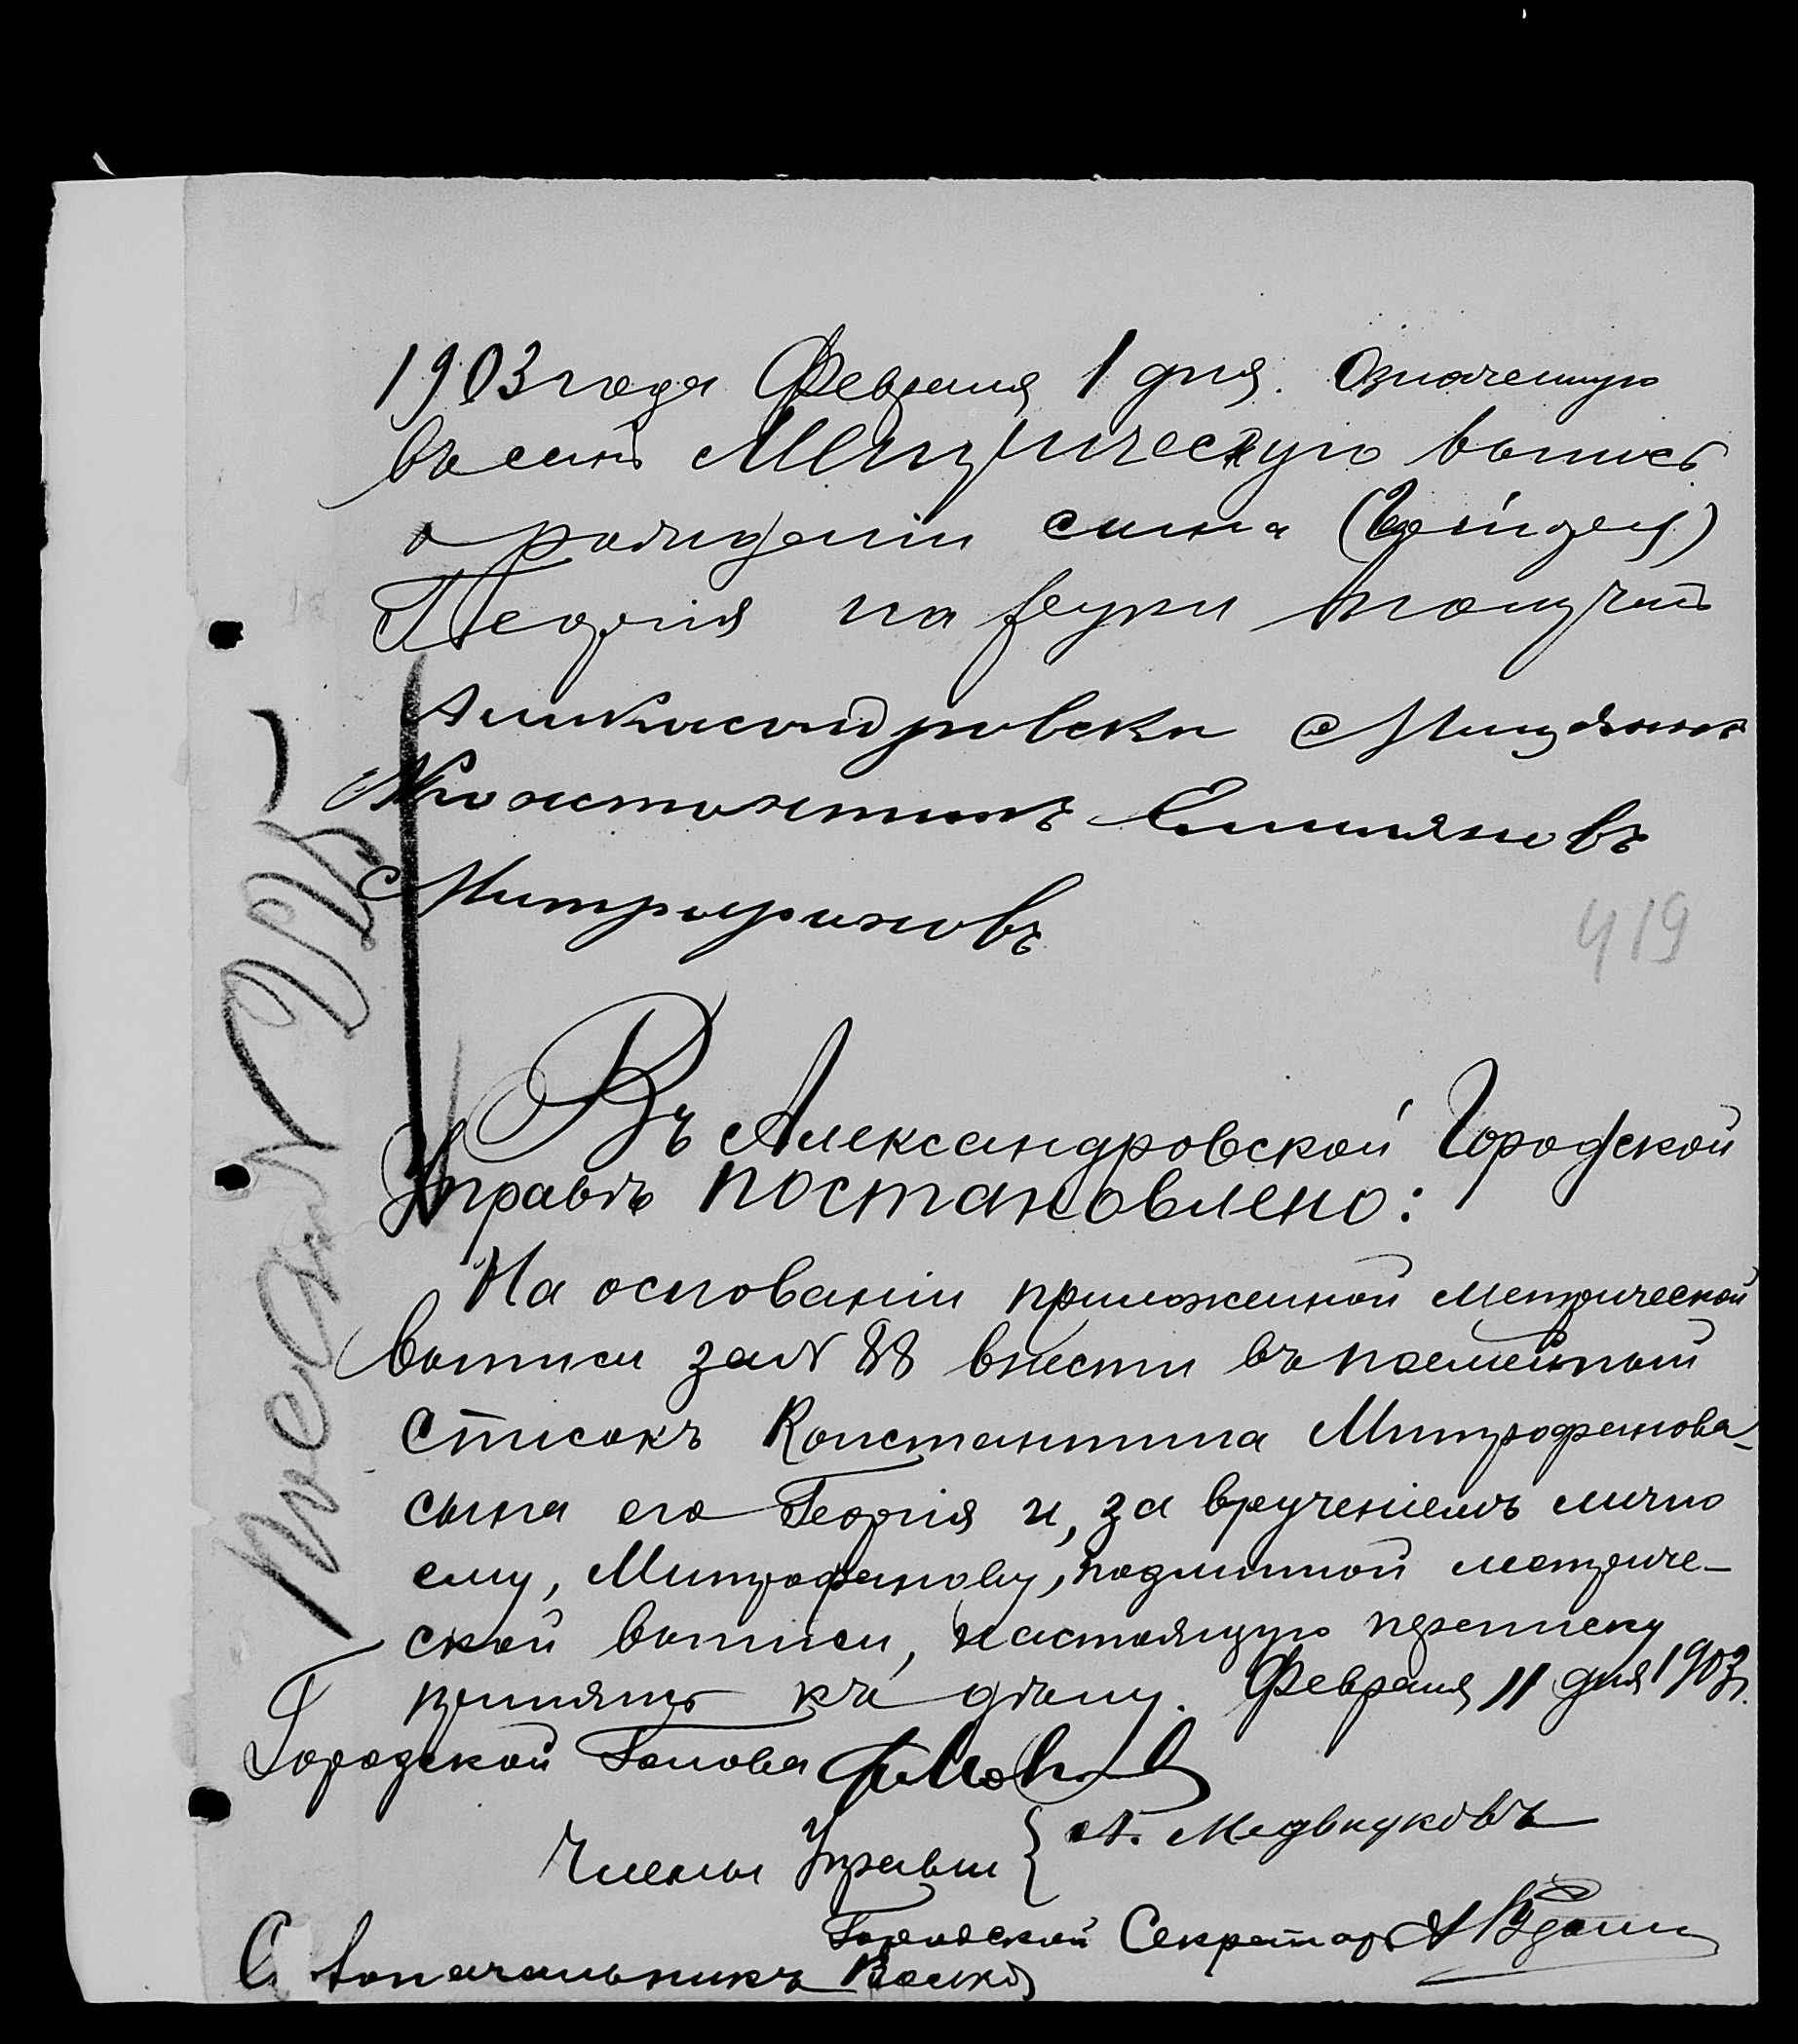 1903 года Февраля 1 дня. Означенную
въ семъ Метрическую выпись
о рожденіи сына
Георгія на руки получилъ
Александровски Мещанинъ
Константинъ Емильяновъ
Митрофановъ
419
Въ Александровской Городской
Управѣ постановлено:
На основаніи приложенной метрической
выписи за № 88 внести въ посемейный
списокъ Константина Митрофанова
сына его Георгія и, за врученіемъ лично
ему, Митрофанову, подлинной метриче-
ской выписи, настоящую переписку
принять къ дѣлу. Февраля 11 дня 1903 г.
Городской Голова
Члены Управы { А. Медвѣдковъ
Городской Секретарь
Столоначальникъ